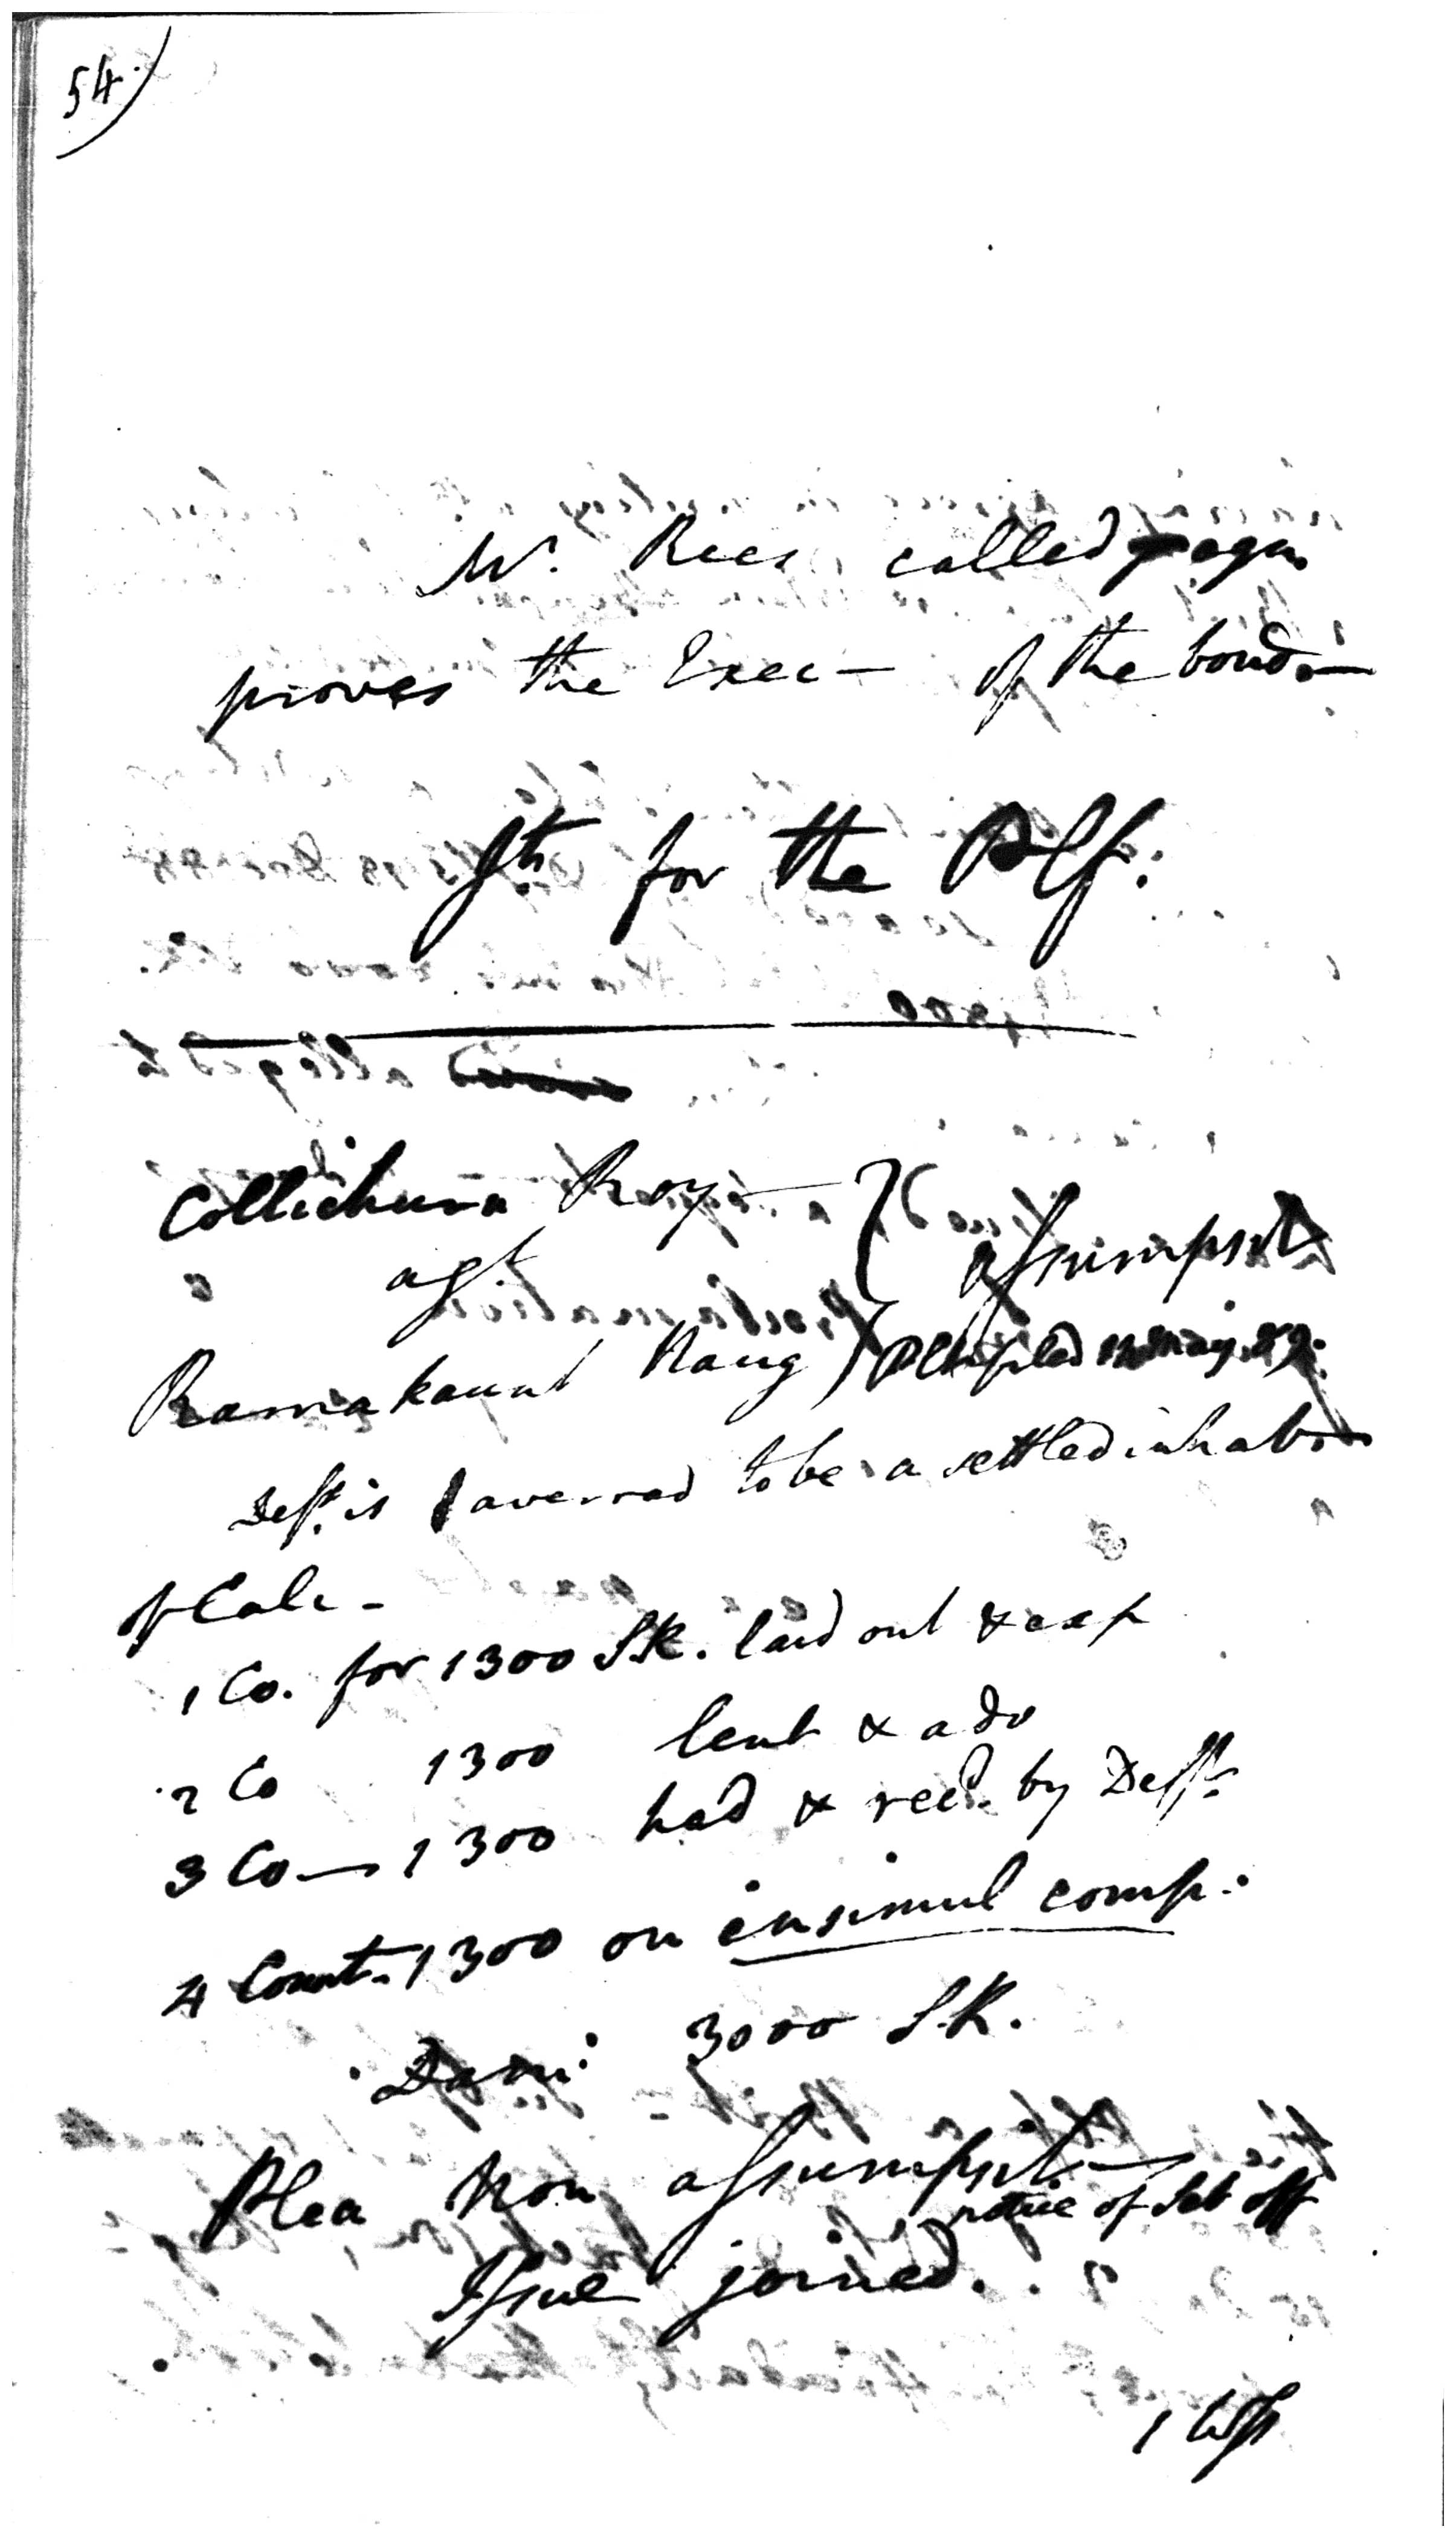 54)
Mr. Rees called again
proves the Exec— of the bond—
Jt. for the Plf:
Collichurn Roy
agt
Ramakaunt Naug } assumpsit
Pl. filed 12 May. 89.
Deft. is averred to be a settled inhab—
of Calc-
1 Co. for 1300 S.R. laid out & exp
2 Co 1300 lent & adv
3 Co— 1300 had & recd. by Deft.
4 Count- 1300 on insimul comp:
Dam: 3000 S.R.
Plea Non assumpsit—
notice of Set off
Issue joined.
1 Wss